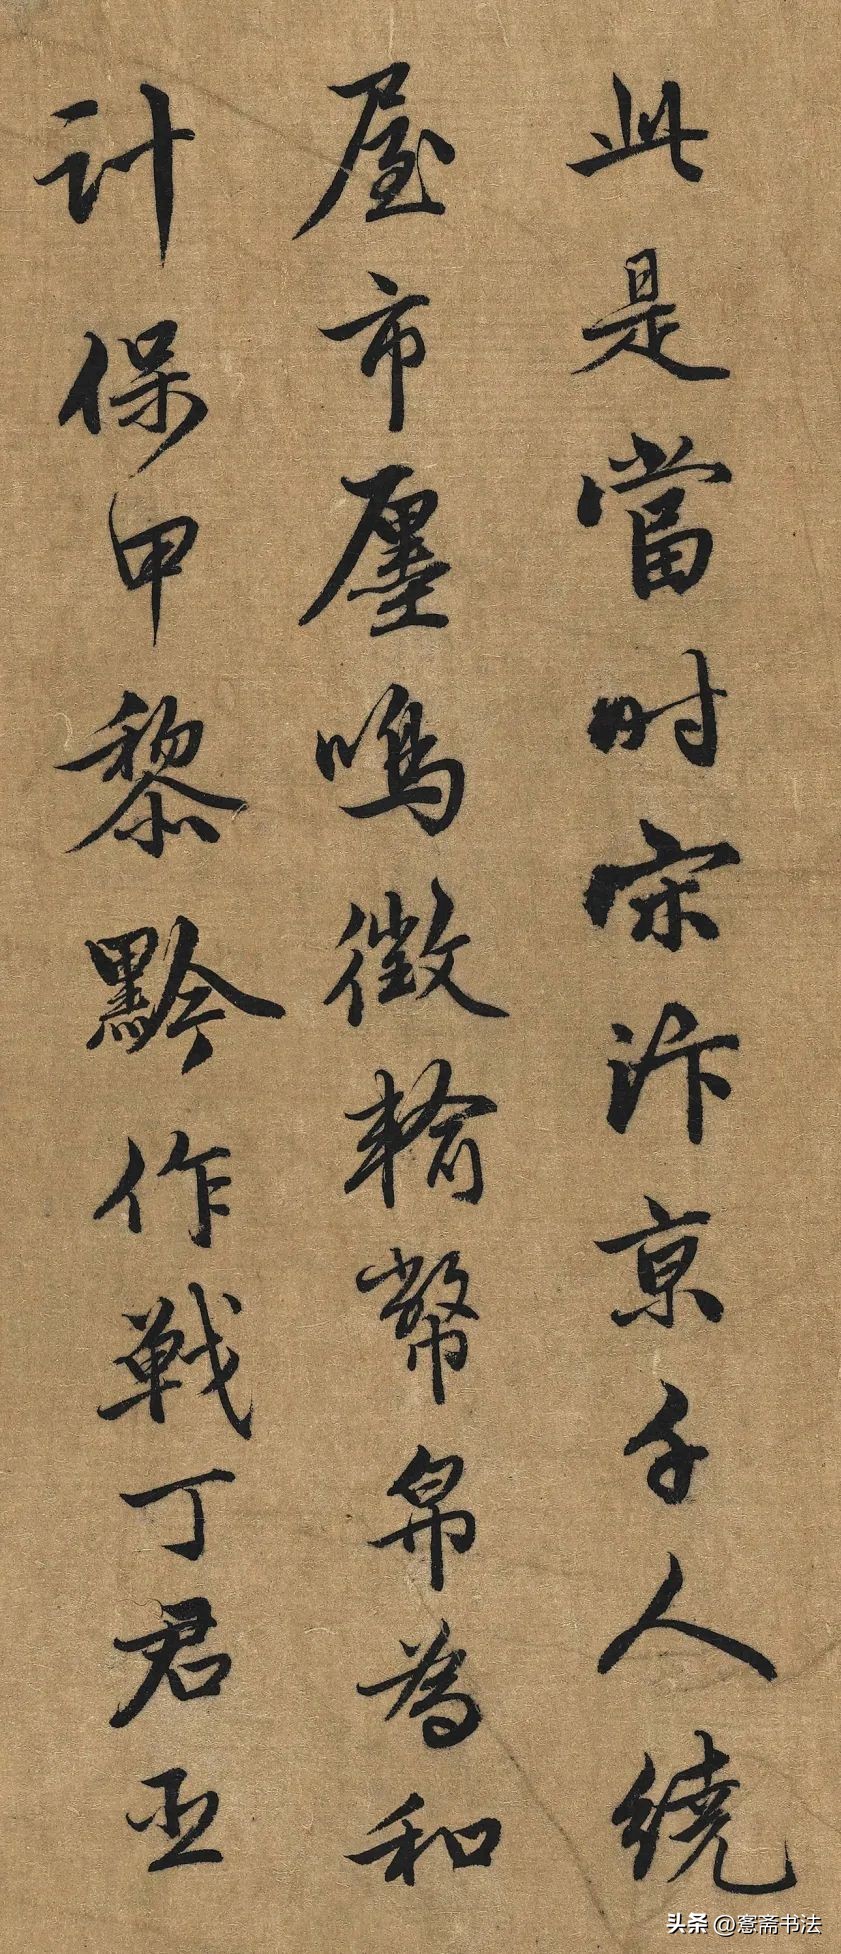 此是當时宋汴京千人繞
屋市廛鳴徵輸幣帛為和
計保甲黎黔作戰丁君臣
头条 @愙斋书法